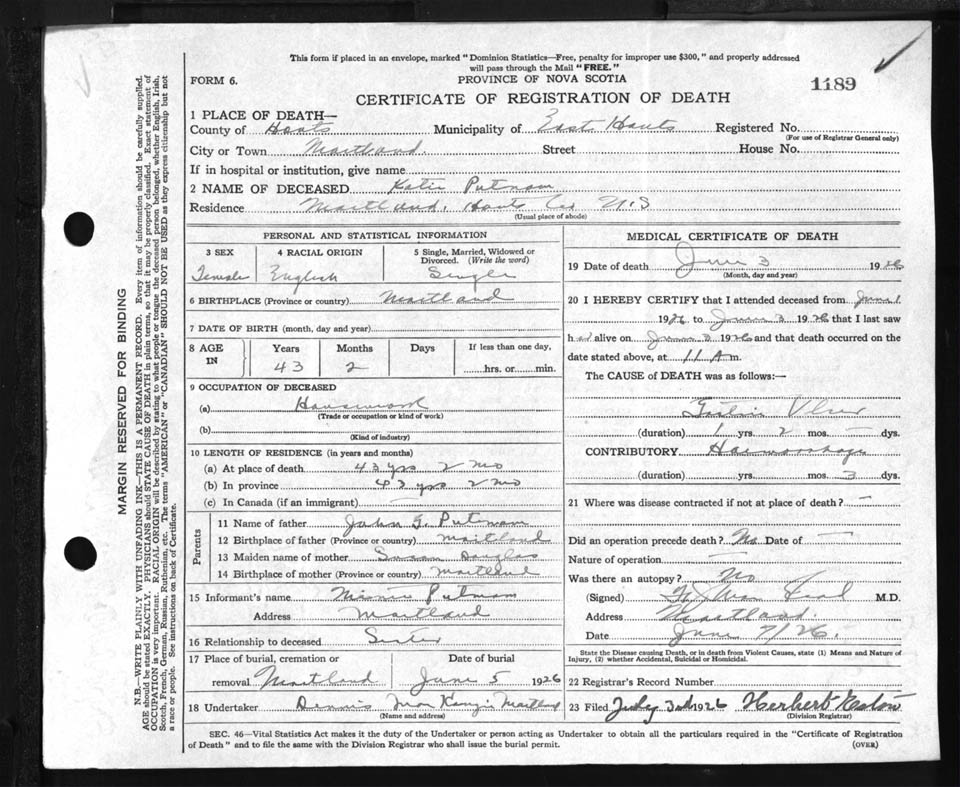 This form if placed in an envelope, marked "Dominion Statistics—Free, penalty for improper use $300," and properly addressed
will pass through the Mail "FREE."
FORM 6.
PROVINCE OF NOVA SCOTIA
1189
CERTIFICATE OF REGISTRATION OF DEATH
1 PLACE OF DEATH—
County of Hants Municipality of East Hants Registered No.
(For use of Registrar General only)
City or Town Maitland Street House No.
If in hospital or institution, give name
2 NAME OF DECEASED Katie Putnam
Residence Maitland, Hants Co N.S
(Usual place of abode)
PERSONAL AND STATISTICAL INFORMATION
3 SEX 4 RACIAL ORIGIN 5 Single, Married, Widowed or
Divorced. (Write the word)
Female English Single
6 BIRTHPLACE (Province or country) Maitland
7 DATE OF BIRTH (month, day and year)
8 AGE IN Years Months Days If less than one day,
43 2 hrs. or min.
9 OCCUPATION OF DECEASED
(a) Housework
(Trade or occupation or kind of work)
(b)
(Kind of industry)
10 LENGTH OF RESIDENCE (in years and months)
(a) At place of death 43 yrs 2 mo
(b) In province 43 yrs 2 mo
(c) In Canada (if an immigrant) —
Parents
11 Name of father John G. Putnam
12 Birthplace of father (Province or country) Maitland
13 Maiden name of mother Susan Douglas
14 Birthplace of mother (Province or country) Maitland
15 Informant's name Minnie Putnam
Address Maitland
16 Relationship to deceased Sister
17 Place of burial, cremation or Date of burial
removal Maitland June 5 1926
18 Undertaker Dennis Maitland
(Name and address)
MEDICAL CERTIFICATE OF DEATH
19 Date of death June 3 1926
(Month, day and year)
20 I HEREBY CERTIFY that I attended deceased from June 1
1926 to June 3 1926 that I last saw
h alive on June 3 1926 and that death occurred on the
date stated above, at 11 A m.
The CAUSE of DEATH was as follows:—
Gastric Ulcer
(duration) 1 yrs. 2 mos. — dys.
CONTRIBUTORY Haemorrhage
(duration) yrs. mos. 3 dys.
21 Where was disease contracted if not at place of death? —
Did an operation precede death? No Date of —
Nature of operation —
Was there an autopsy? No
(Signed) M.D.
Address Maitland
Date June 7/26.
State the Disease causing Death, or in death from Violent Causes, state (1) Means and Nature of
Injury, (2) whether Accidental, Suicidal or Homicidal.
22 Registrar's Record Number
23 Filed 1926 Herbert
(Division Registrar)
SEC. 46—Vital Statistics Act makes it the duty of the Undertaker or person acting as Undertaker to obtain all the particulars required in the "Certificate of Registration
of Death" and to file the same with the Division Registrar who shall issue the burial permit. (OVER)
MARGIN RESERVED FOR BINDING
N.B.—WRITE PLAINLY WITH UNFADING INK—THIS IS A PERMANENT RECORD. Every item of information should be carefully supplied.
AGE should be stated EXACTLY. PHYSICIANS should STATE CAUSE OF DEATH in plain terms, so that it may be properly classified. Exact statement of
OCCUPATION is very important. RACIAL ORIGIN will be described by stating to what people or tongue the deceased person belonged, whether English, Irish,
Scotch, French, German, Russian, Ruthenian, etc. The terms "AMERICAN" or "CANADIAN" SHOULD NOT BE USED as they express citizenship but not
a race or people. See instructions on back of Certificate.